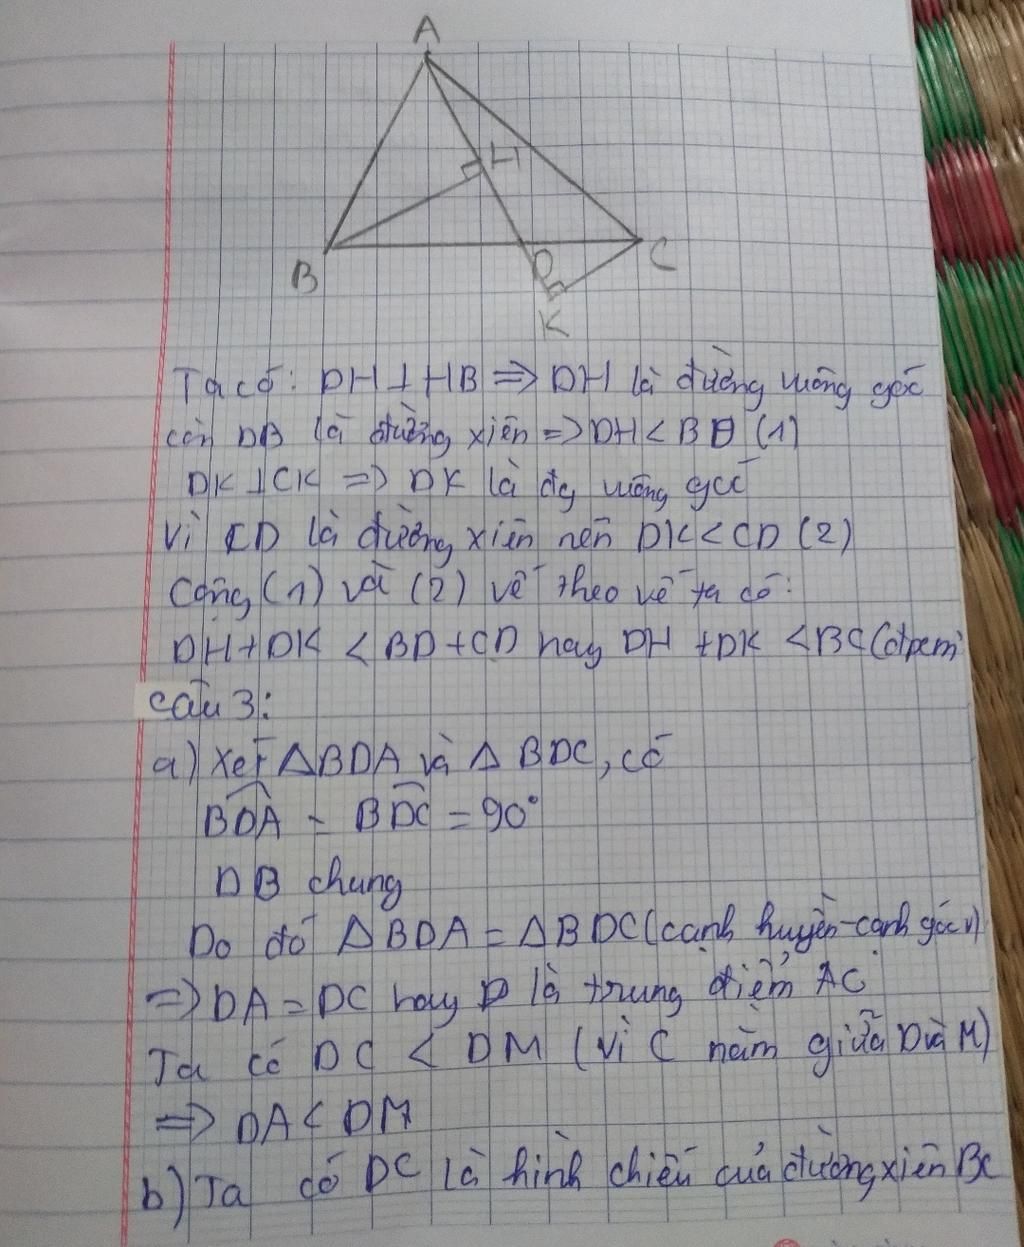 A
H
B
D
C
K
Ta có: DH⊥HB => DH là đường vuông góc
còn DB là đường xiên => DH < BD (1)
DK⊥CK => DK là đg vuông góc
Vì CD là đường xiên nên DK < CD (2)
Cộng (1) và (2) vế theo vế ta có:
DH+DK < BD+CD hay DH +DK < BC (đpcm
Câu 3:
a) Xét ΔBDA và Δ BDC, có
BDA = BDC = 90°
DB chung
Do đó ΔBDA = ΔBDC (cạnh huyền-cạnh góc v)
=> DA = DC hay D là trung điểm AC
Ta có DC < DM (vì C nằm giữa D và M)
=> DA < DM
b) Ta có DC là hình chiếu của đường xiên BC